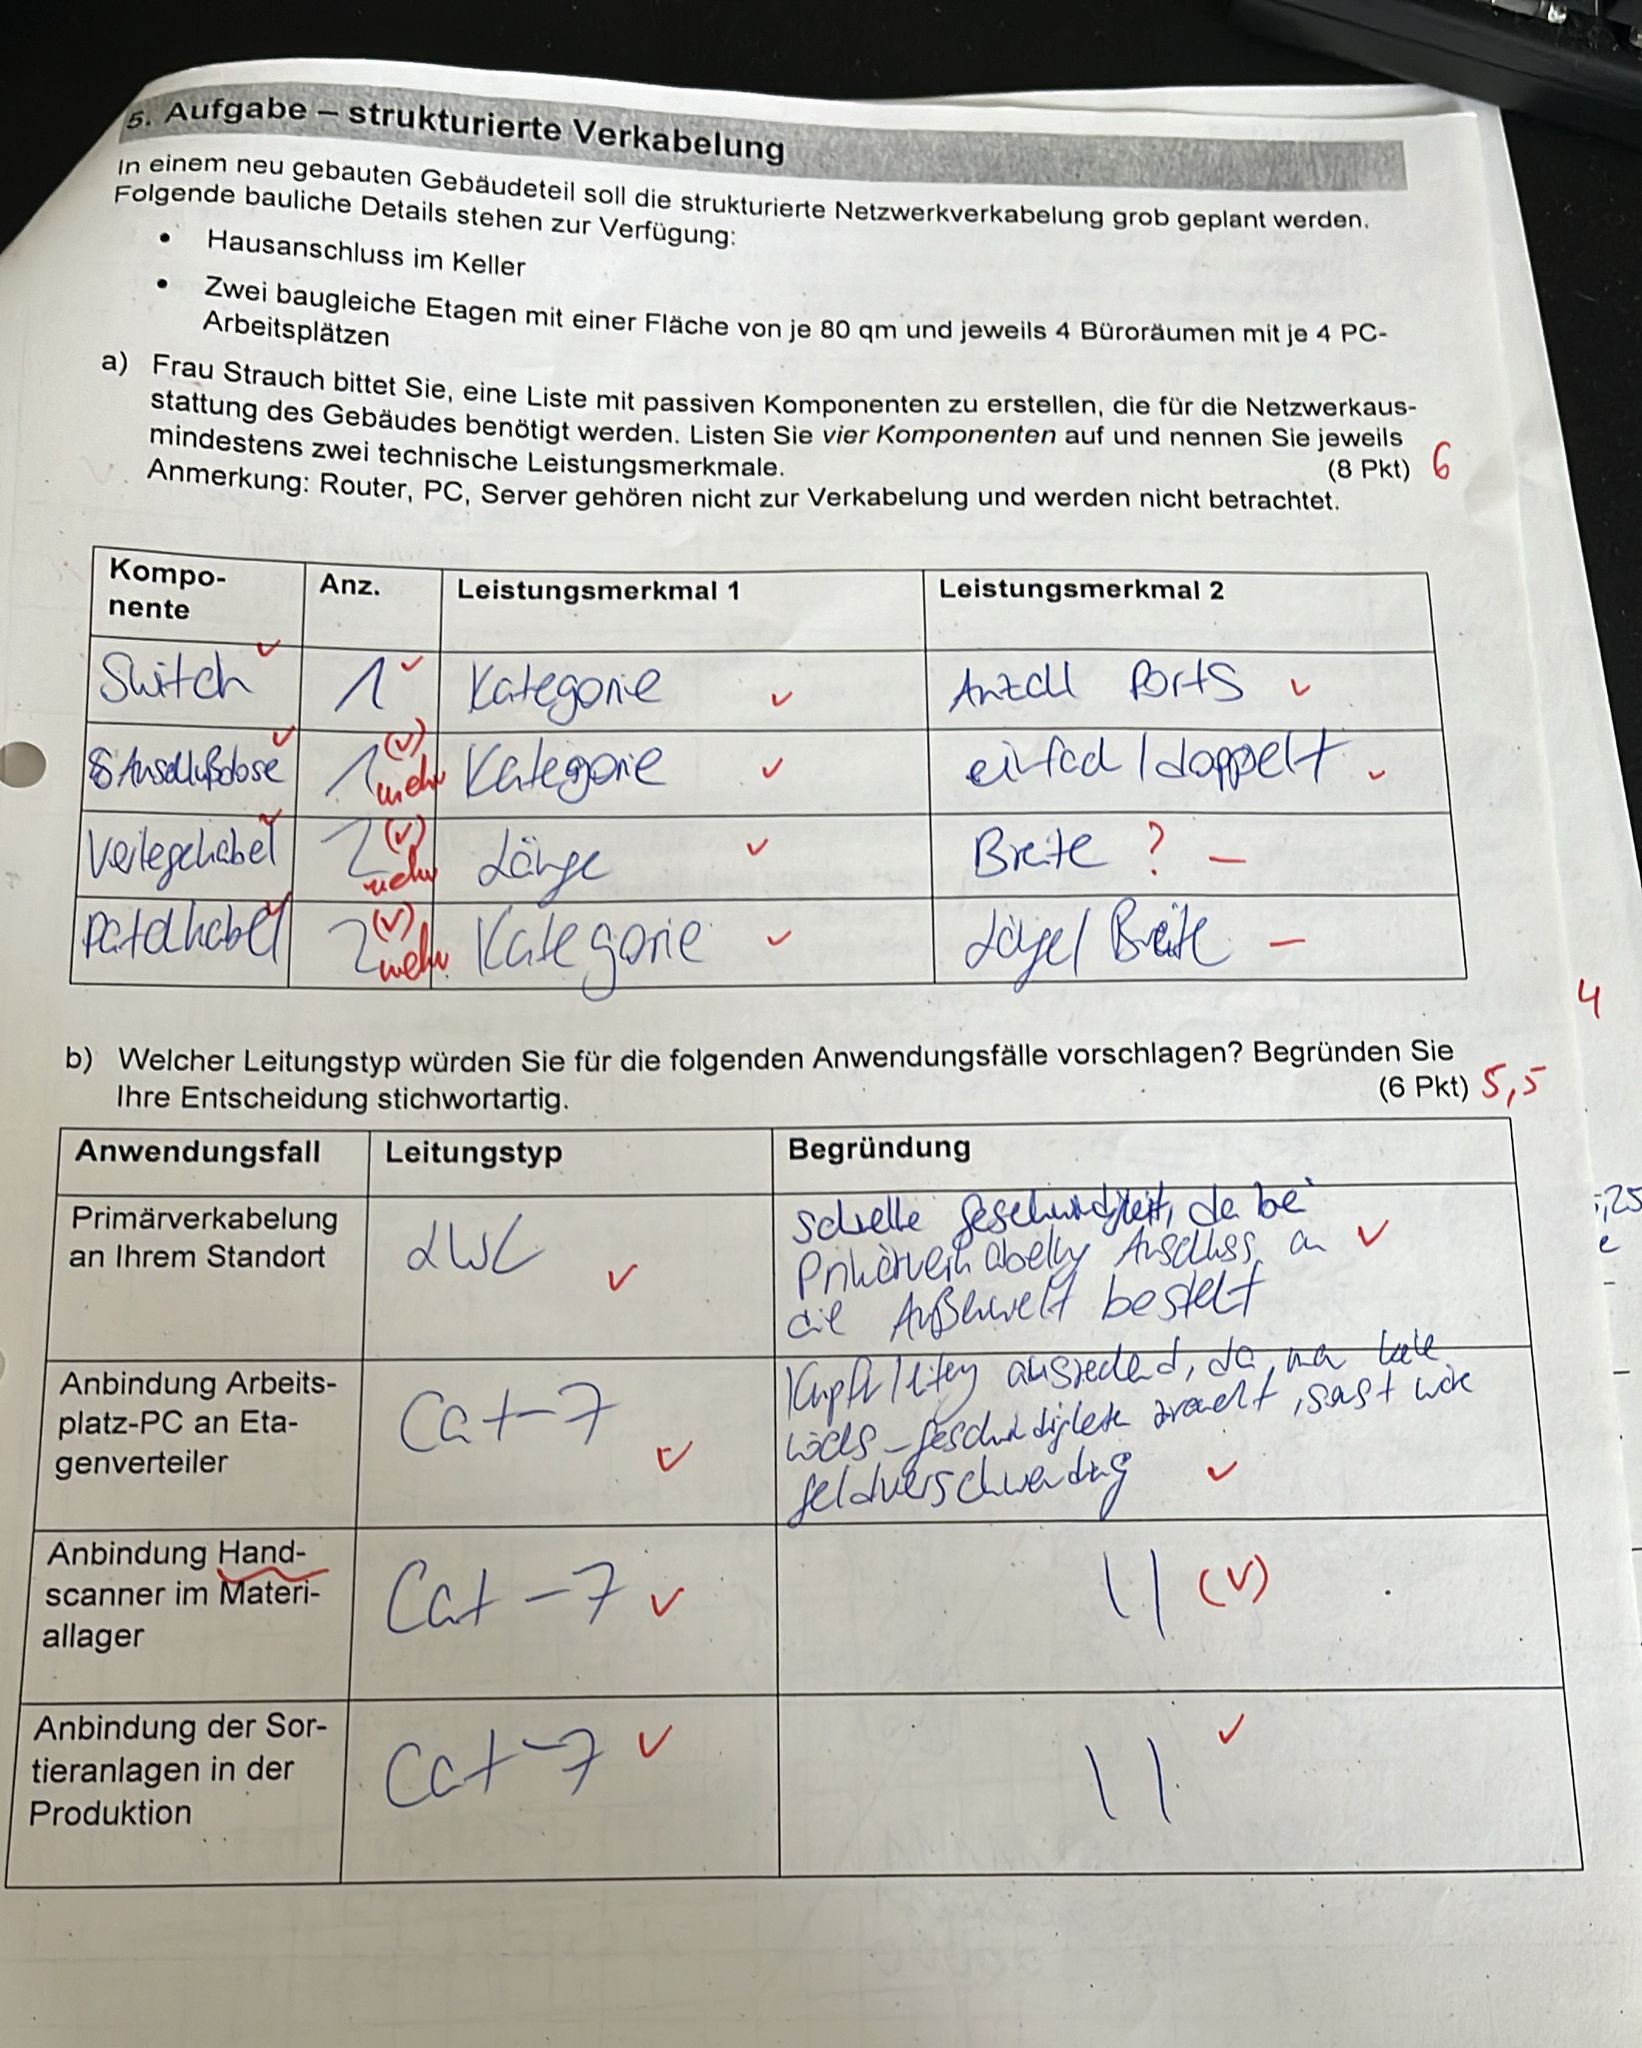 5. Aufgabe – strukturierte Verkabelung
In einem neu gebauten Gebäudeteil soll die strukturierte Netzwerkverkabelung grob geplant werden.
Folgende bauliche Details stehen zur Verfügung:
• Hausanschluss im Keller
• Zwei baugleiche Etagen mit einer Fläche von je 80 qm und jeweils 4 Büroräumen mit je 4 PC-
Arbeitsplätzen
a) Frau Strauch bittet Sie, eine Liste mit passiven Komponenten zu erstellen, die für die Netzwerkaus-
stattung des Gebäudes benötigt werden. Listen Sie vier Komponenten auf und nennen Sie jeweils
mindestens zwei technische Leistungsmerkmale. (8 Pkt) 6
Anmerkung: Router, PC, Server gehören nicht zur Verkabelung und werden nicht betrachtet.
Kompo-
nente
Anz.
Leistungsmerkmal 1
Leistungsmerkmal 2
Switch ✓ 1 ✓ Kategorie ✓ Anzall Ports ✓
Anschlußdose ✓ 1 (✓) mehr Kategorie ✓ einfach / doppelt ✓
Verlegekabel ✓ 2 (✓) mehr Länge ✓ Breite ? –
Patchkabel ✓ 2 (✓) mehr Kategorie ✓ Länge / Breite –
4
b) Welcher Leitungstyp würden Sie für die folgenden Anwendungsfälle vorschlagen? Begründen Sie
Ihre Entscheidung stichwortartig. (6 Pkt) 5,5
Anwendungsfall
Leitungstyp
Begründung
Primärverkabelung
an Ihrem Standort
LWL ✓
schnelle Geschwindigkeit, da bei
Primärverkabelung Anschluss an ✓
die Außenwelt besteht
Anbindung Arbeits-
platz-PC an Eta-
genverteiler
Cat-7 ✓
ausreichend, da man keine
Geldverschwendung ✓
Anbindung Hand-
scanner im Materi-
allager
Cat-7 ✓
11 (✓)
Anbindung der Sor-
tieranlagen in der
Produktion
Cat-7 ✓
11 ✓
,25
e